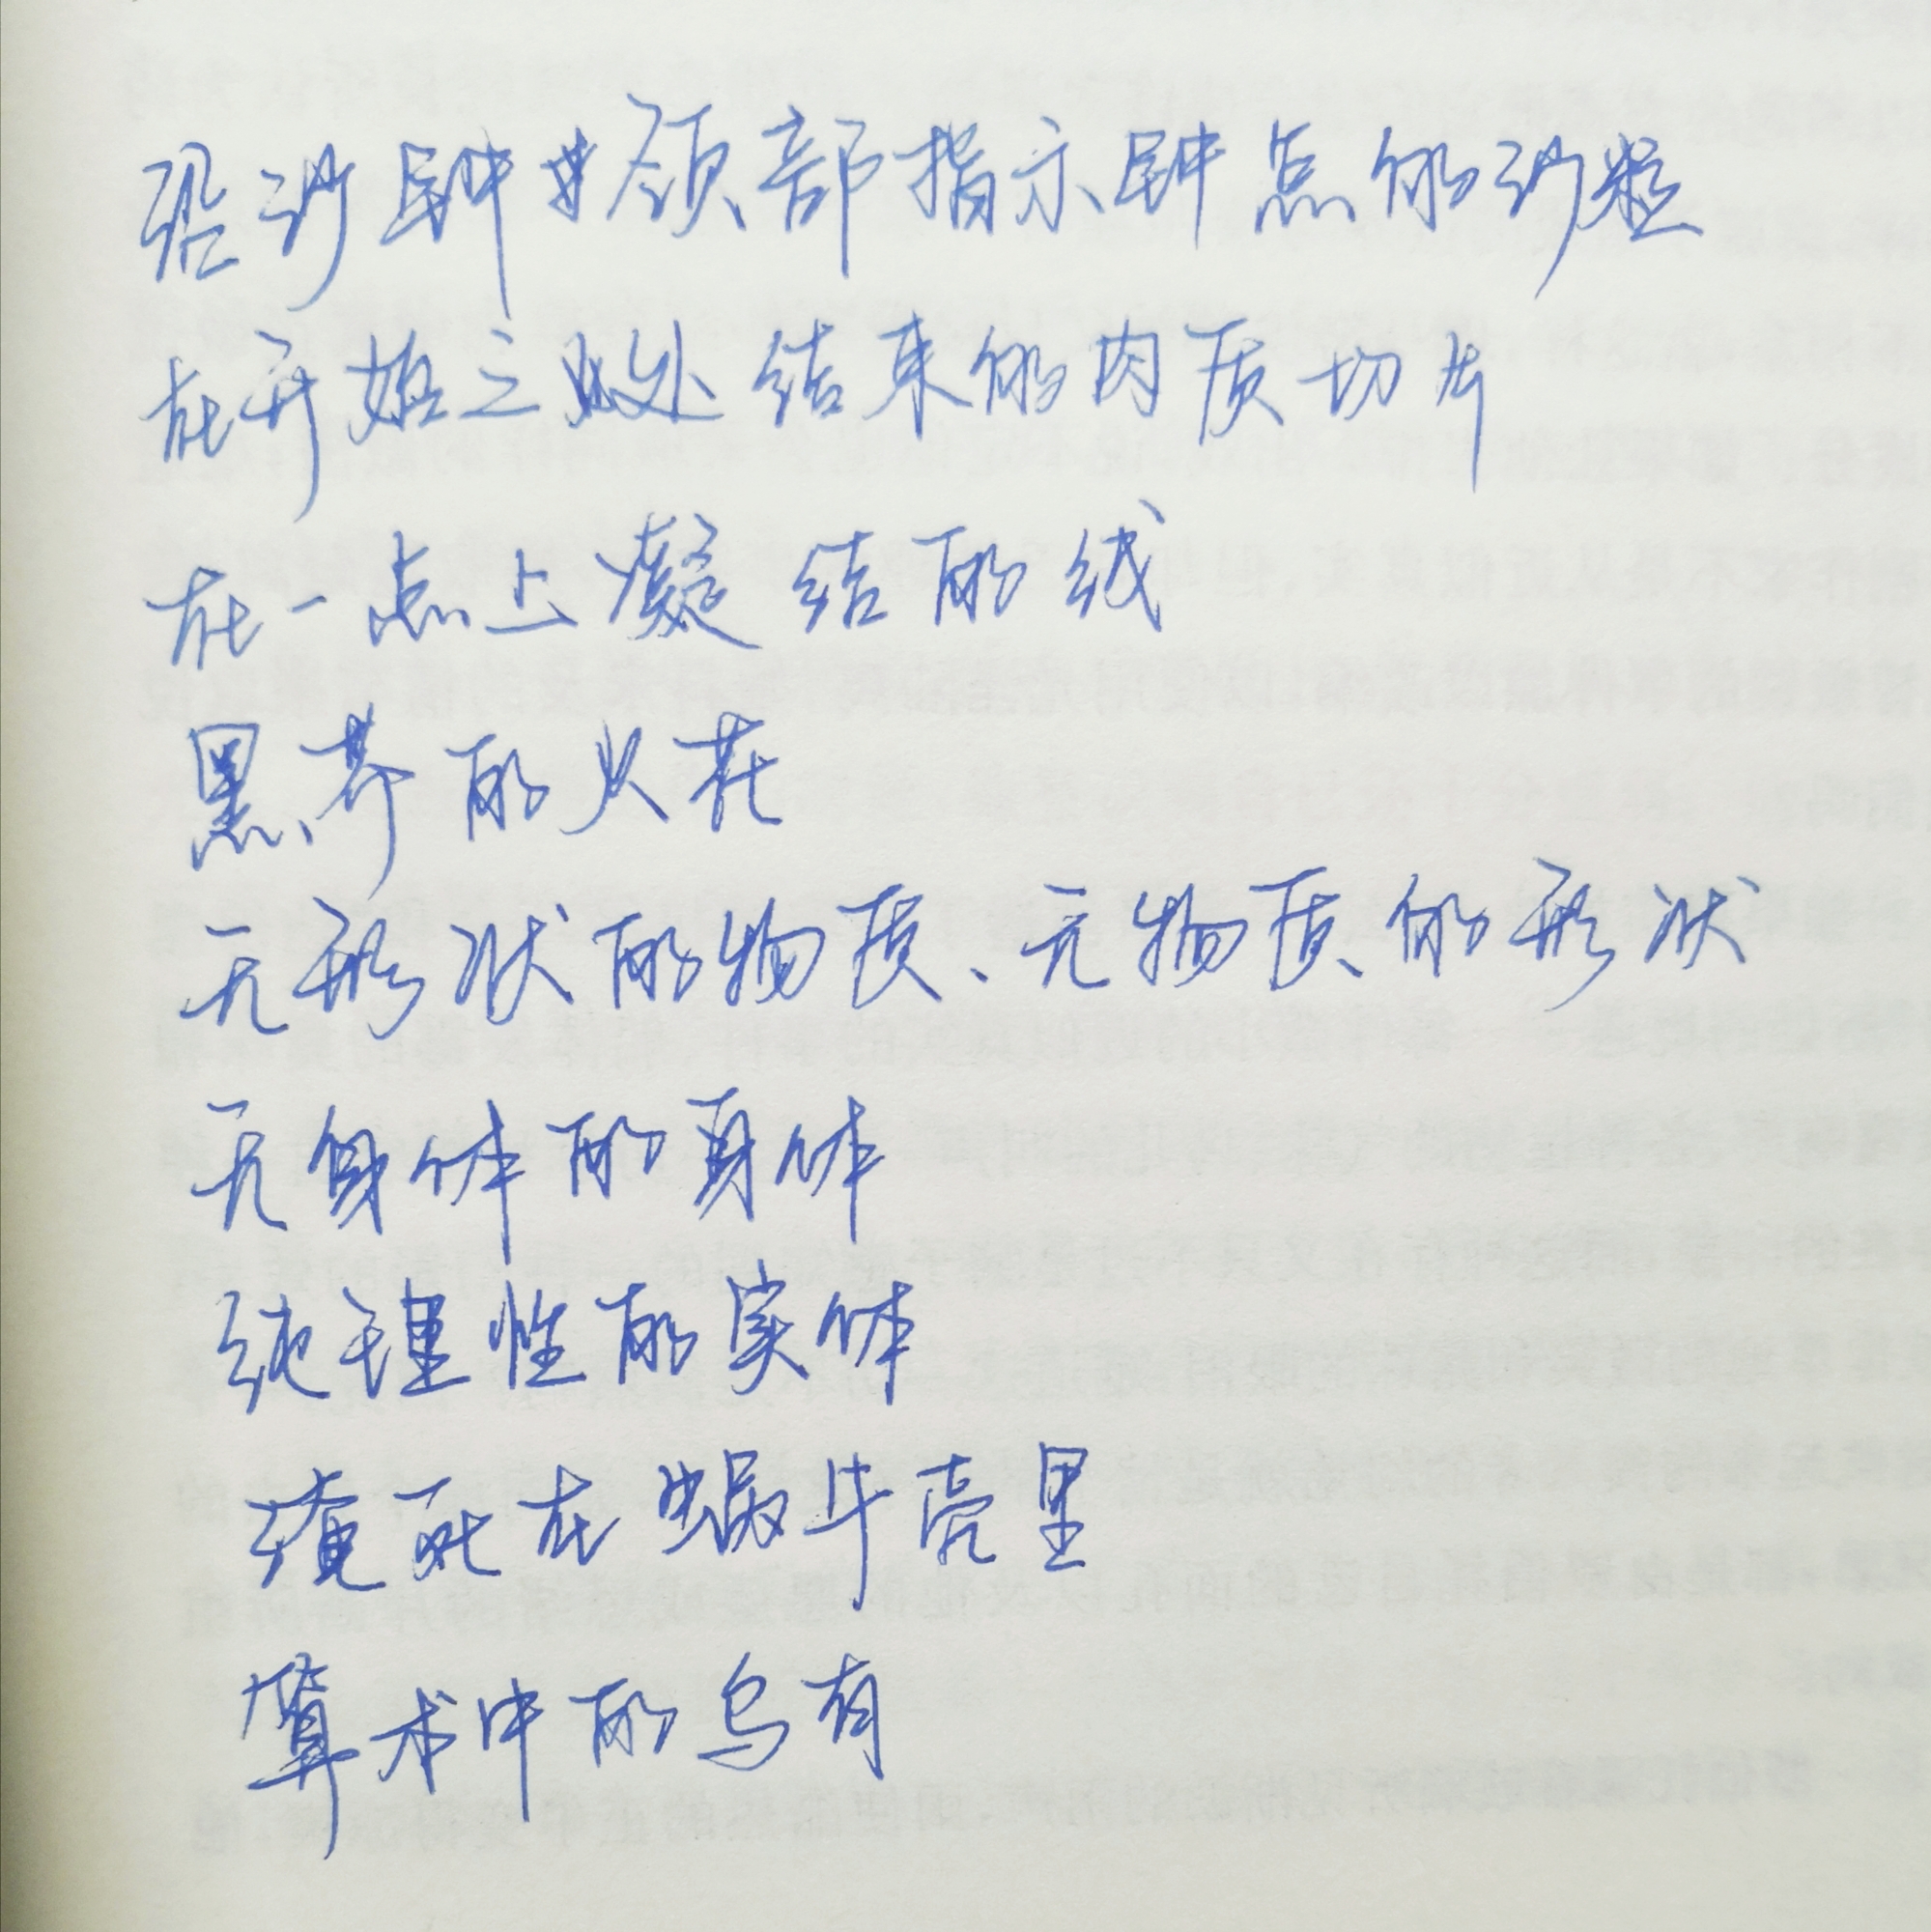 沿沙钟颈部指示钟点的沙粒
在开始之处结束的肉质切片
在一点上凝结的线
黑的火花
无形状的物质、无物质的形状
无身体的身体
纯理性的实体
淹死在蜗牛壳里
算术中的乌有